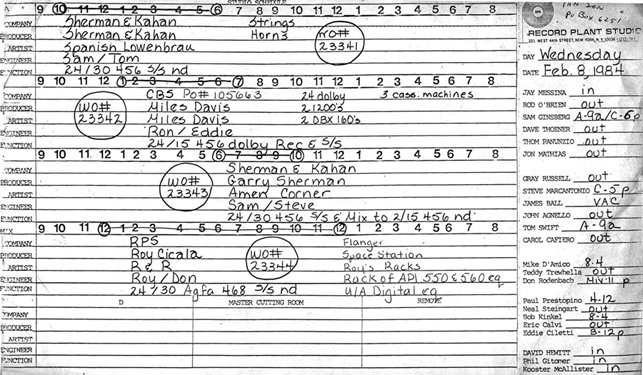 STUDIO SCHEDULE
9 10 11 12 1 2 3 4 5 6 7 8 9 10 11 12 1 2 3 4 5 6 7 8
COMPANY Sherman & Kahan Strings
PRODUCER Sherman & Kahan Horns WO#
ARTIST Spanish Lowenbrau 23341
ENGINEER Sam/Tom
FUNCTION 24/30 456 S/S nd
9 10 11 12 1 2 3 4 5 6 7 8 9 10 11 12 1 2 3 4 5 6 7 8
COMPANY CBS PO# 105663 24 dolby 3 cass. machines
PRODUCER WO# Miles Davis 2 1200's
ARTIST 23342 Miles Davis 2 DBX 160's
ENGINEER Ron/Eddie
FUNCTION 24/15 456 dolby Rec & S/S
9 10 11 12 1 2 3 4 5 6 7 8 9 10 11 12 1 2 3 4 5 6 7 8
COMPANY Sherman & Kahan
PRODUCER WO# Garry Sherman
ARTIST 23343 Amen Corner
ENGINEER Sam/Steve
FUNCTION 24/30 456 S/S & Mix to 2/15 456 nd
MIX 9 10 11 12 1 2 3 4 5 6 7 8 9 10 11 12 1 2 3 4 5 6 7 8
COMPANY RPS Flanger
PRODUCER Roy Cicala WO# Space Station
ARTIST R & R 23344 Roy's Racks
ENGINEER Roy/Don Rack of API 550 & 560 eq
FUNCTION 24/30 Agfa 468 S/S nd U/A Digital eq
D MASTER CUTTING ROOM REMOTE
COMPANY
PRODUCER
ARTIST
ENGINEER
FUNCTION
COMPANY
PRODUCER
ARTIST
ENGINEER
FUNCTION
PO Box 6251
RECORD PLANT STUDIOS
321 WEST 44th STREET, NEW YORK, N.Y.
DAY Wednesday
DATE Feb. 8, 1984
JAY MESSINA in
ROD O'BRIEN out
SAM GINSBERG A-9a/C-6p
DAVE THOENER out
THOM PANUNZIO out
JON MATHIAS out
GRAY RUSSELL out
STEVE MARCANTONIO C-5p
JAMES BALL VAC
JOHN AGNELLO out
TOM SWIFT A-9a
CAROL CAFIERO out
Mike D'Amico 8-4
Teddy Trewhella out
Don Rodenbach Mix-11p
Paul Prestopino 4-12
Neal Steingart out
Bob Kinkel 8-4
Eric Calvi out
Eddie Ciletti B-12p
DAVID HEWITT in
Phil Gitomer in
Kooster McAllister in